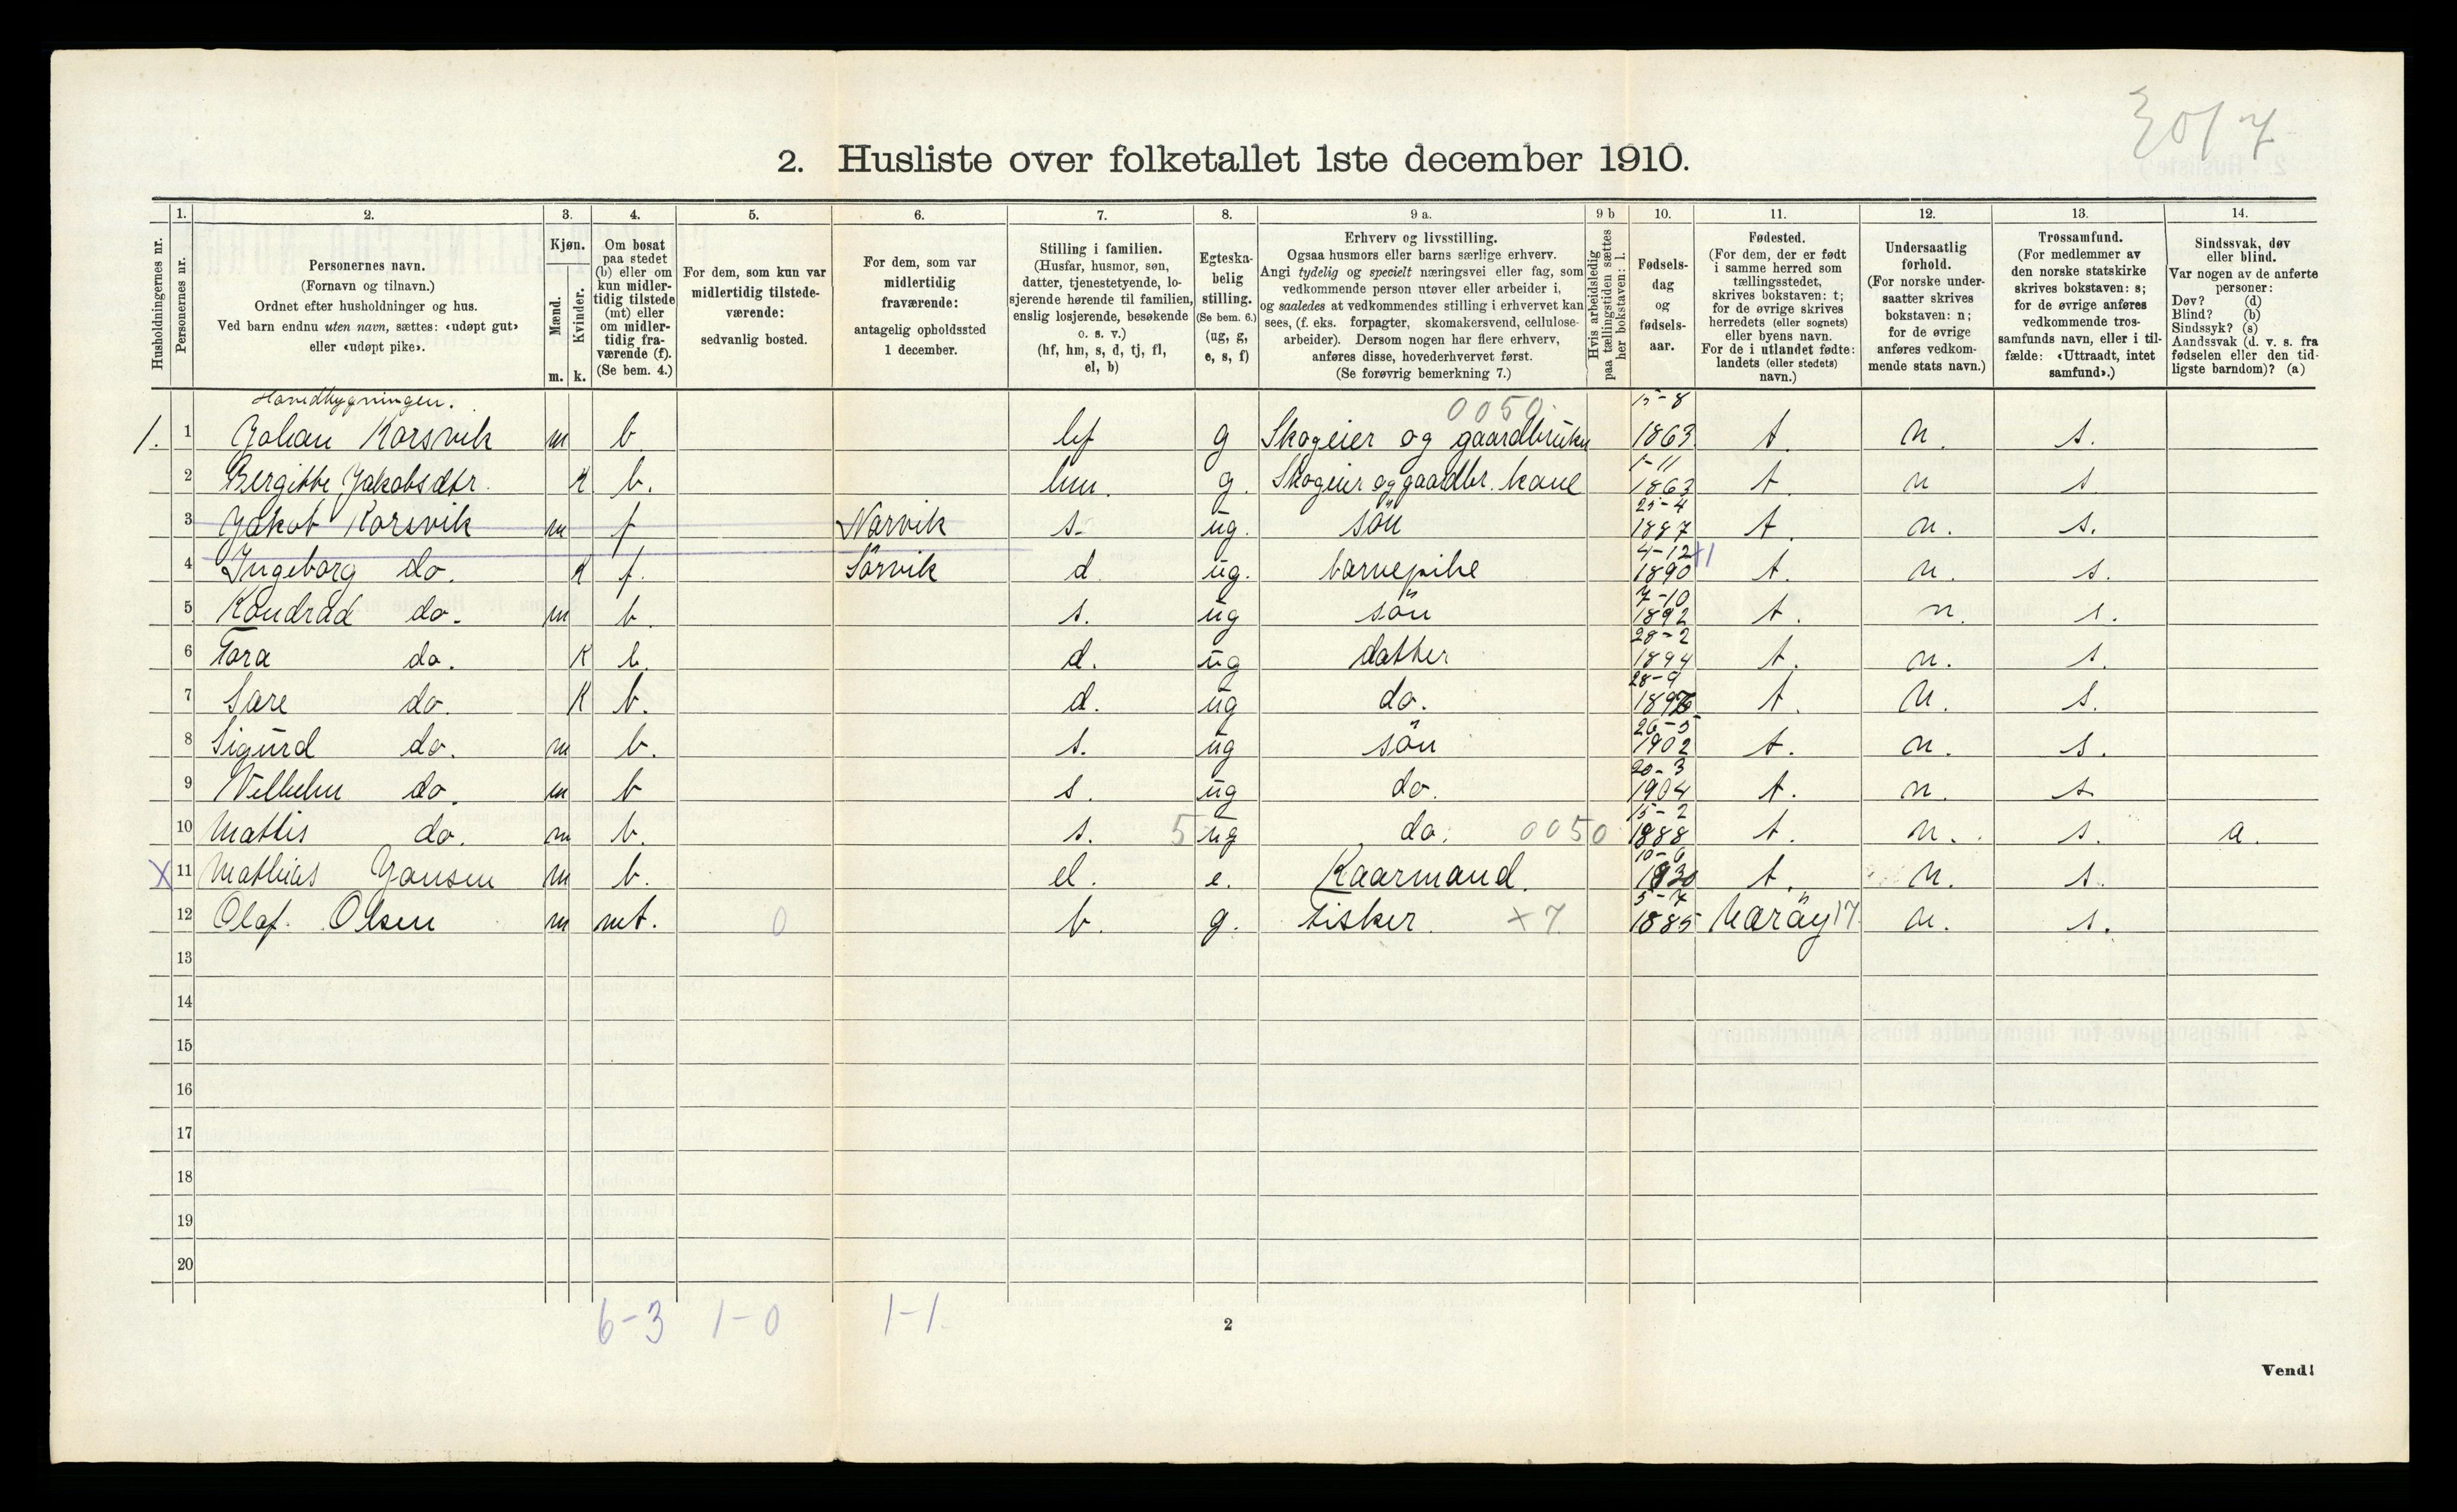 30/7
2. Husliste over folketallet 1ste december 1910.
Husholdningernes nr.
1.
Personernes nr.
2.
Personernes navn.
(Fornavn og tilnavn.)
Ordnet efter husholdninger og hus.
Ved barn endnu uten navn, sættes: «udøpt gut»
eller «udøpt pike».
3.
Kjøn.
Mænd.
Kvinder.
m. k.
4.
Om bosat
paa stedet
(b) eller om
kun midler-
tidig tilstede
(mt) eller
om midler-
tidig fra-
værende (f).
(Se bem. 4.)
5.
For dem, som kun var
midlertidig tilstede-
værende:
sedvanlig bosted.
6.
For dem, som var
midlertidig
fraværende:
antagelig opholdssted
1 december.
7.
Stilling i familien.
(Husfar, husmor, søn,
datter, tjenestetyende, lo-
sjerende hørende til familien,
enslig losjerende, besøkende
o. s. v.)
(hf, hm, s, d, tj, fl,
el, b)
8.
Egteska-
belig
stilling.
(Se bem. 6.)
(ug, g,
e, s, f)
9 a.
Erhverv og livsstilling.
Ogsaa husmors eller barns særlige erhverv.
Angi tydelig og specielt næringsvei eller fag, som
vedkommende person utøver eller arbeider i,
og saaledes at vedkommendes stilling i erhvervet kan
sees, (f. eks. forpagter, skomakersvend, cellulose-
arbeider). Dersom nogen har flere erhverv,
anføres disse, hovederhvervet først.
(Se forøvrig bemerkning 7.)
9 b
Hvis arbeidsledig
paa tællingstiden sættes
her bokstaven: l.
10.
Fødsels-
dag
og
fødsels-
aar.
11.
Fødested.
(For dem, der er født
i samme herred som
tællingsstedet,
skrives bokstaven: t;
for de øvrige skrives
herredets (eller sognets)
eller byens navn.
For de i utlandet fødte:
landets (eller stedets)
navn.)
12.
Undersaatlig
forhold.
(For norske under-
saatter skrives
bokstaven: n;
for de øvrige
anføres vedkom-
mende stats navn.)
13.
Trossamfund.
(For medlemmer av
den norske statskirke
skrives bokstaven: s;
for de øvrige anføres
vedkommende tros-
samfunds navn, eller i til-
fælde: «Uttraadt, intet
samfund».)
14.
Sindssvak, døv
eller blind.
Var nogen av de anførte
personer:
Døv? (d)
Blind? (b)
Sindssyk? (s)
Aandssvak (d. v. s. fra
fødselen eller den tid-
ligste barndom)? (a)
Hovedbygningen.
1. 1 Johan Korsvik m b. hf g Skogeier og gaardbruker 0050 15-8 1863 t. n. s.
2 Bergitte Jakobsdtr. K b. hm. g. Skogeier og gaardbr. kone 1-11 1863 t. n s
3 Jakob Korsvik m f Narvik s. ug. sön 25-4 1887 t. n. s.
4 Ingeborg do. K f. Sörvik d ug. barnepike 4-12 1890 t. n. s.
5 Kondrad do. m b. s. ug sön 7-10 1892 t. n. s.
6 Tora do. K b. d. ug datter 28-2 1894 t. n. s.
7 Sare do. K b. d. ug do. 28-9 1896 t. n. s.
8 Sigurd do. m b. s. ug sön 26-5 1902 t. n. s.
9 Vilhelm do. m b s. ug do. 20-3 1904 t. n. s
10 Mathis do. m b. s. 5 ug do. 0050 15-2 1888 t. n. s. a.
X 11 Mathias Jansen m b. el. e. Kaarmand. 10-6 1830 t. n. s.
12 Olaf Olsen m mt. 0 b. g. Fisker x7 5-7 1885 Maröy 17 n. s.
13
14
15
16
17
18
19
20
6-3 1-0 1-1.
2
Vend!